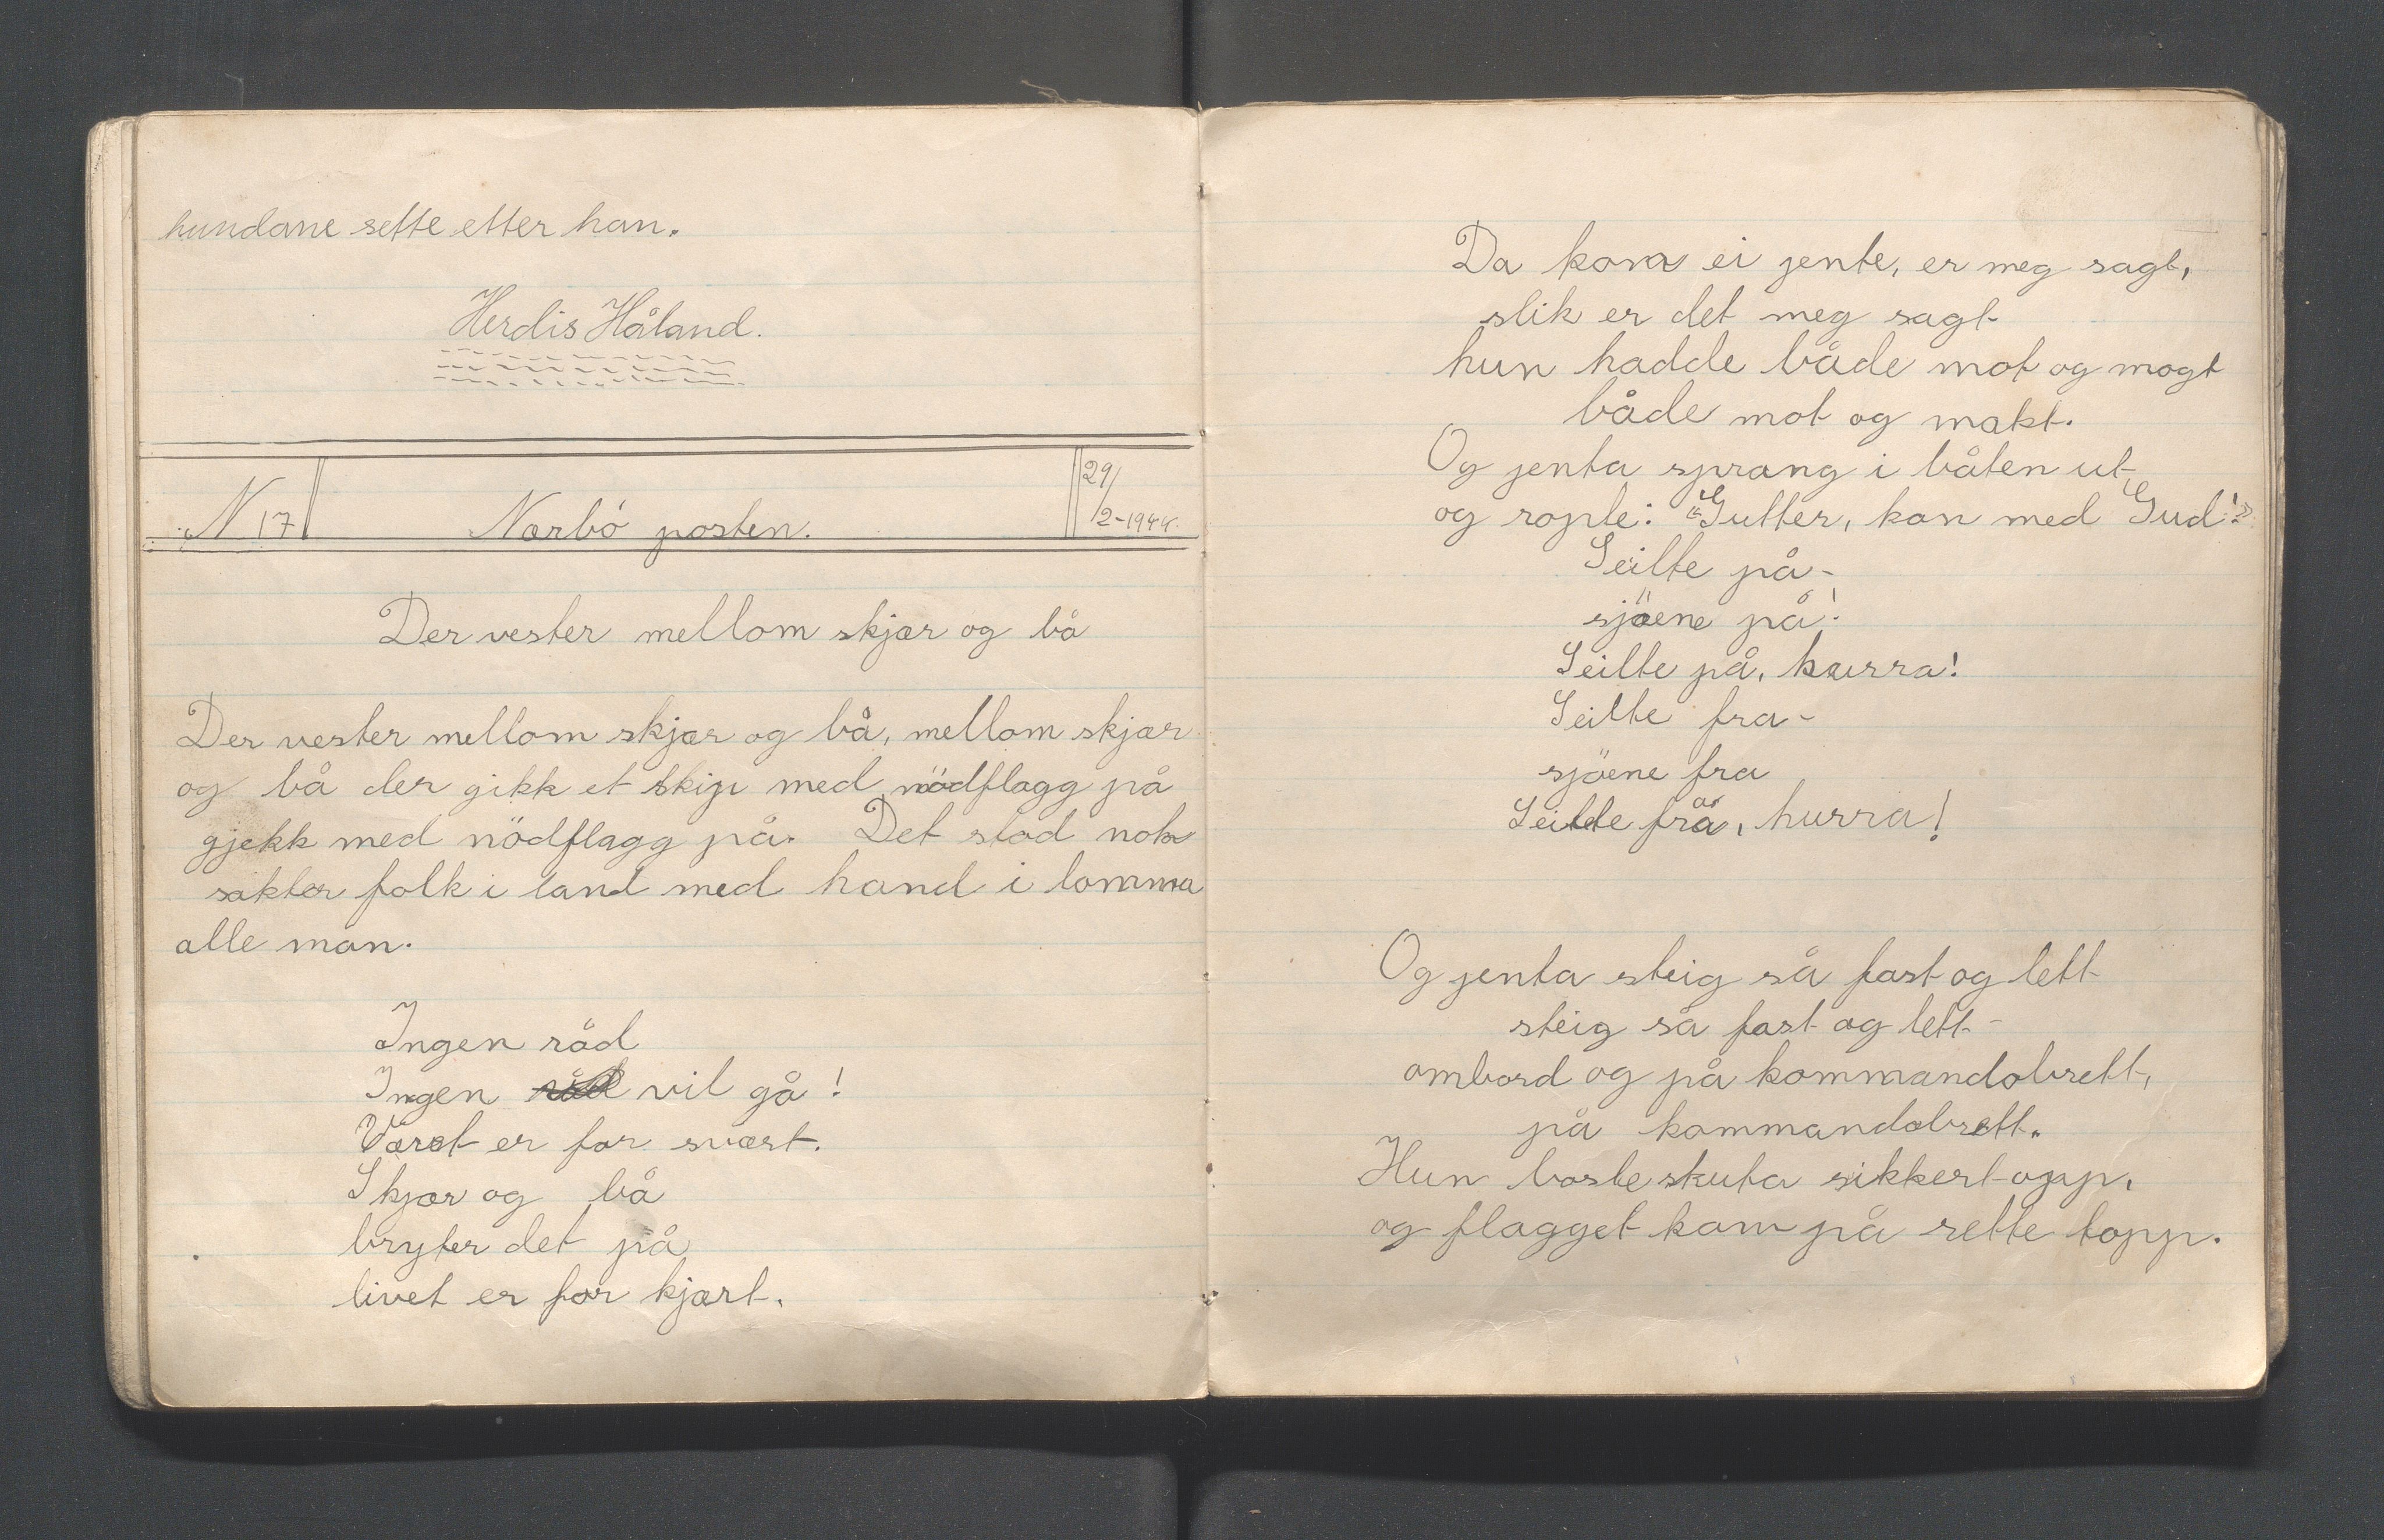 hundane sette etter han.
Herdis Håland.
N 17
Nærbö posten.
29/
/2-1944.
Der vester mellom skjær og bå
Der vester mellom skjær og bå, mellom skjær
og bå der gikk et skip med nödflagg på
gjekk med nödflagg på. Det stod nok
sikter folk i land med hand i lomma
alle man.
Ingen råd
Ingen råd vil gå!
Været er for svært.
Skjær og bå
bryter det på
livet er for kjært.
Da kom ei jente, er meg sagt,
slik er det meg sagt
hun hadde både mot og magt
både mot og makt.
Og jenta sprang i båten ut
og ropte: "Gutter, kom med Gud!"
Seilte på-
sjöene på!
Seilte på, hurra!
Seilte fra-
sjöene fra
Seilte frå, hurra!
Og jenta steig så fast og lett
steig så fast og lett-
ombord og på kommandobrett,
på kommandobrett.
Hun baste skuta sikkert opp,
og flagget kom på rette topp.